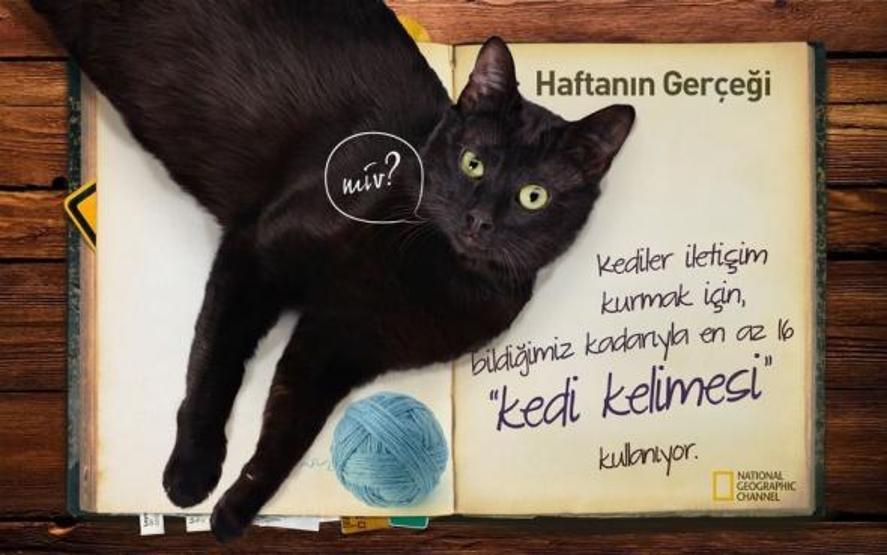 Haftanın Gerçeği
mıv?
Kediler iletişim
kurmak için,
bildiğimiz kadarıyla en az 16
"kedi kelimesi"
kullanıyor.
NATIONAL
GEOGRAPHIC
CHANNEL